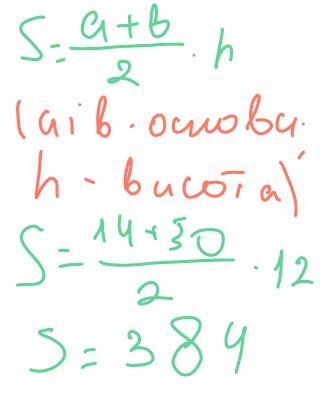 S = (a + b) / 2 · h
(a i b - основи
h - висота)
S = (14 + 50) / 2 · 12
S = 384